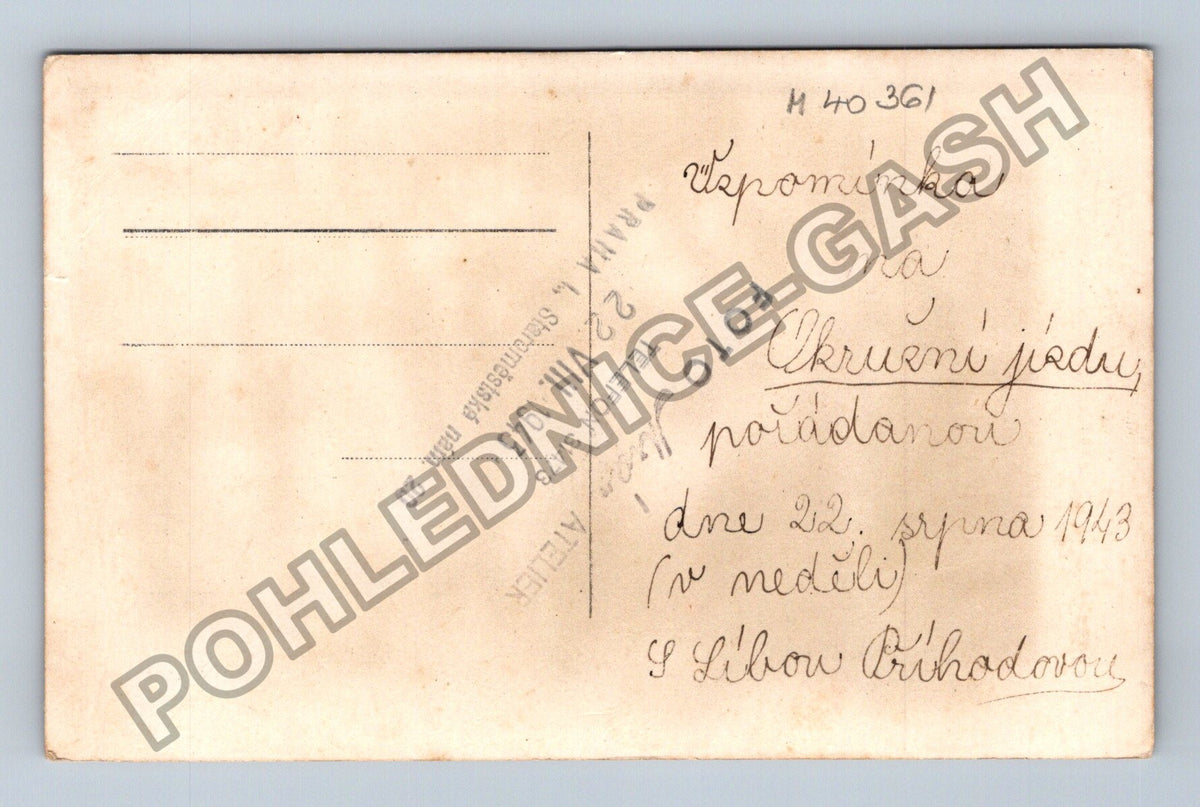 M 40 361
Vzpomínka
na
Okružní jízdu,
pořádanou
dne 22. srpna 1943
(v neděli)
S Líbou Příhodovou
FOTO
ATELIER
TELEFON
PRAHA I,
Staroměstské nám. 20
22 VIII. 1943
POHLEDNICE-GASH